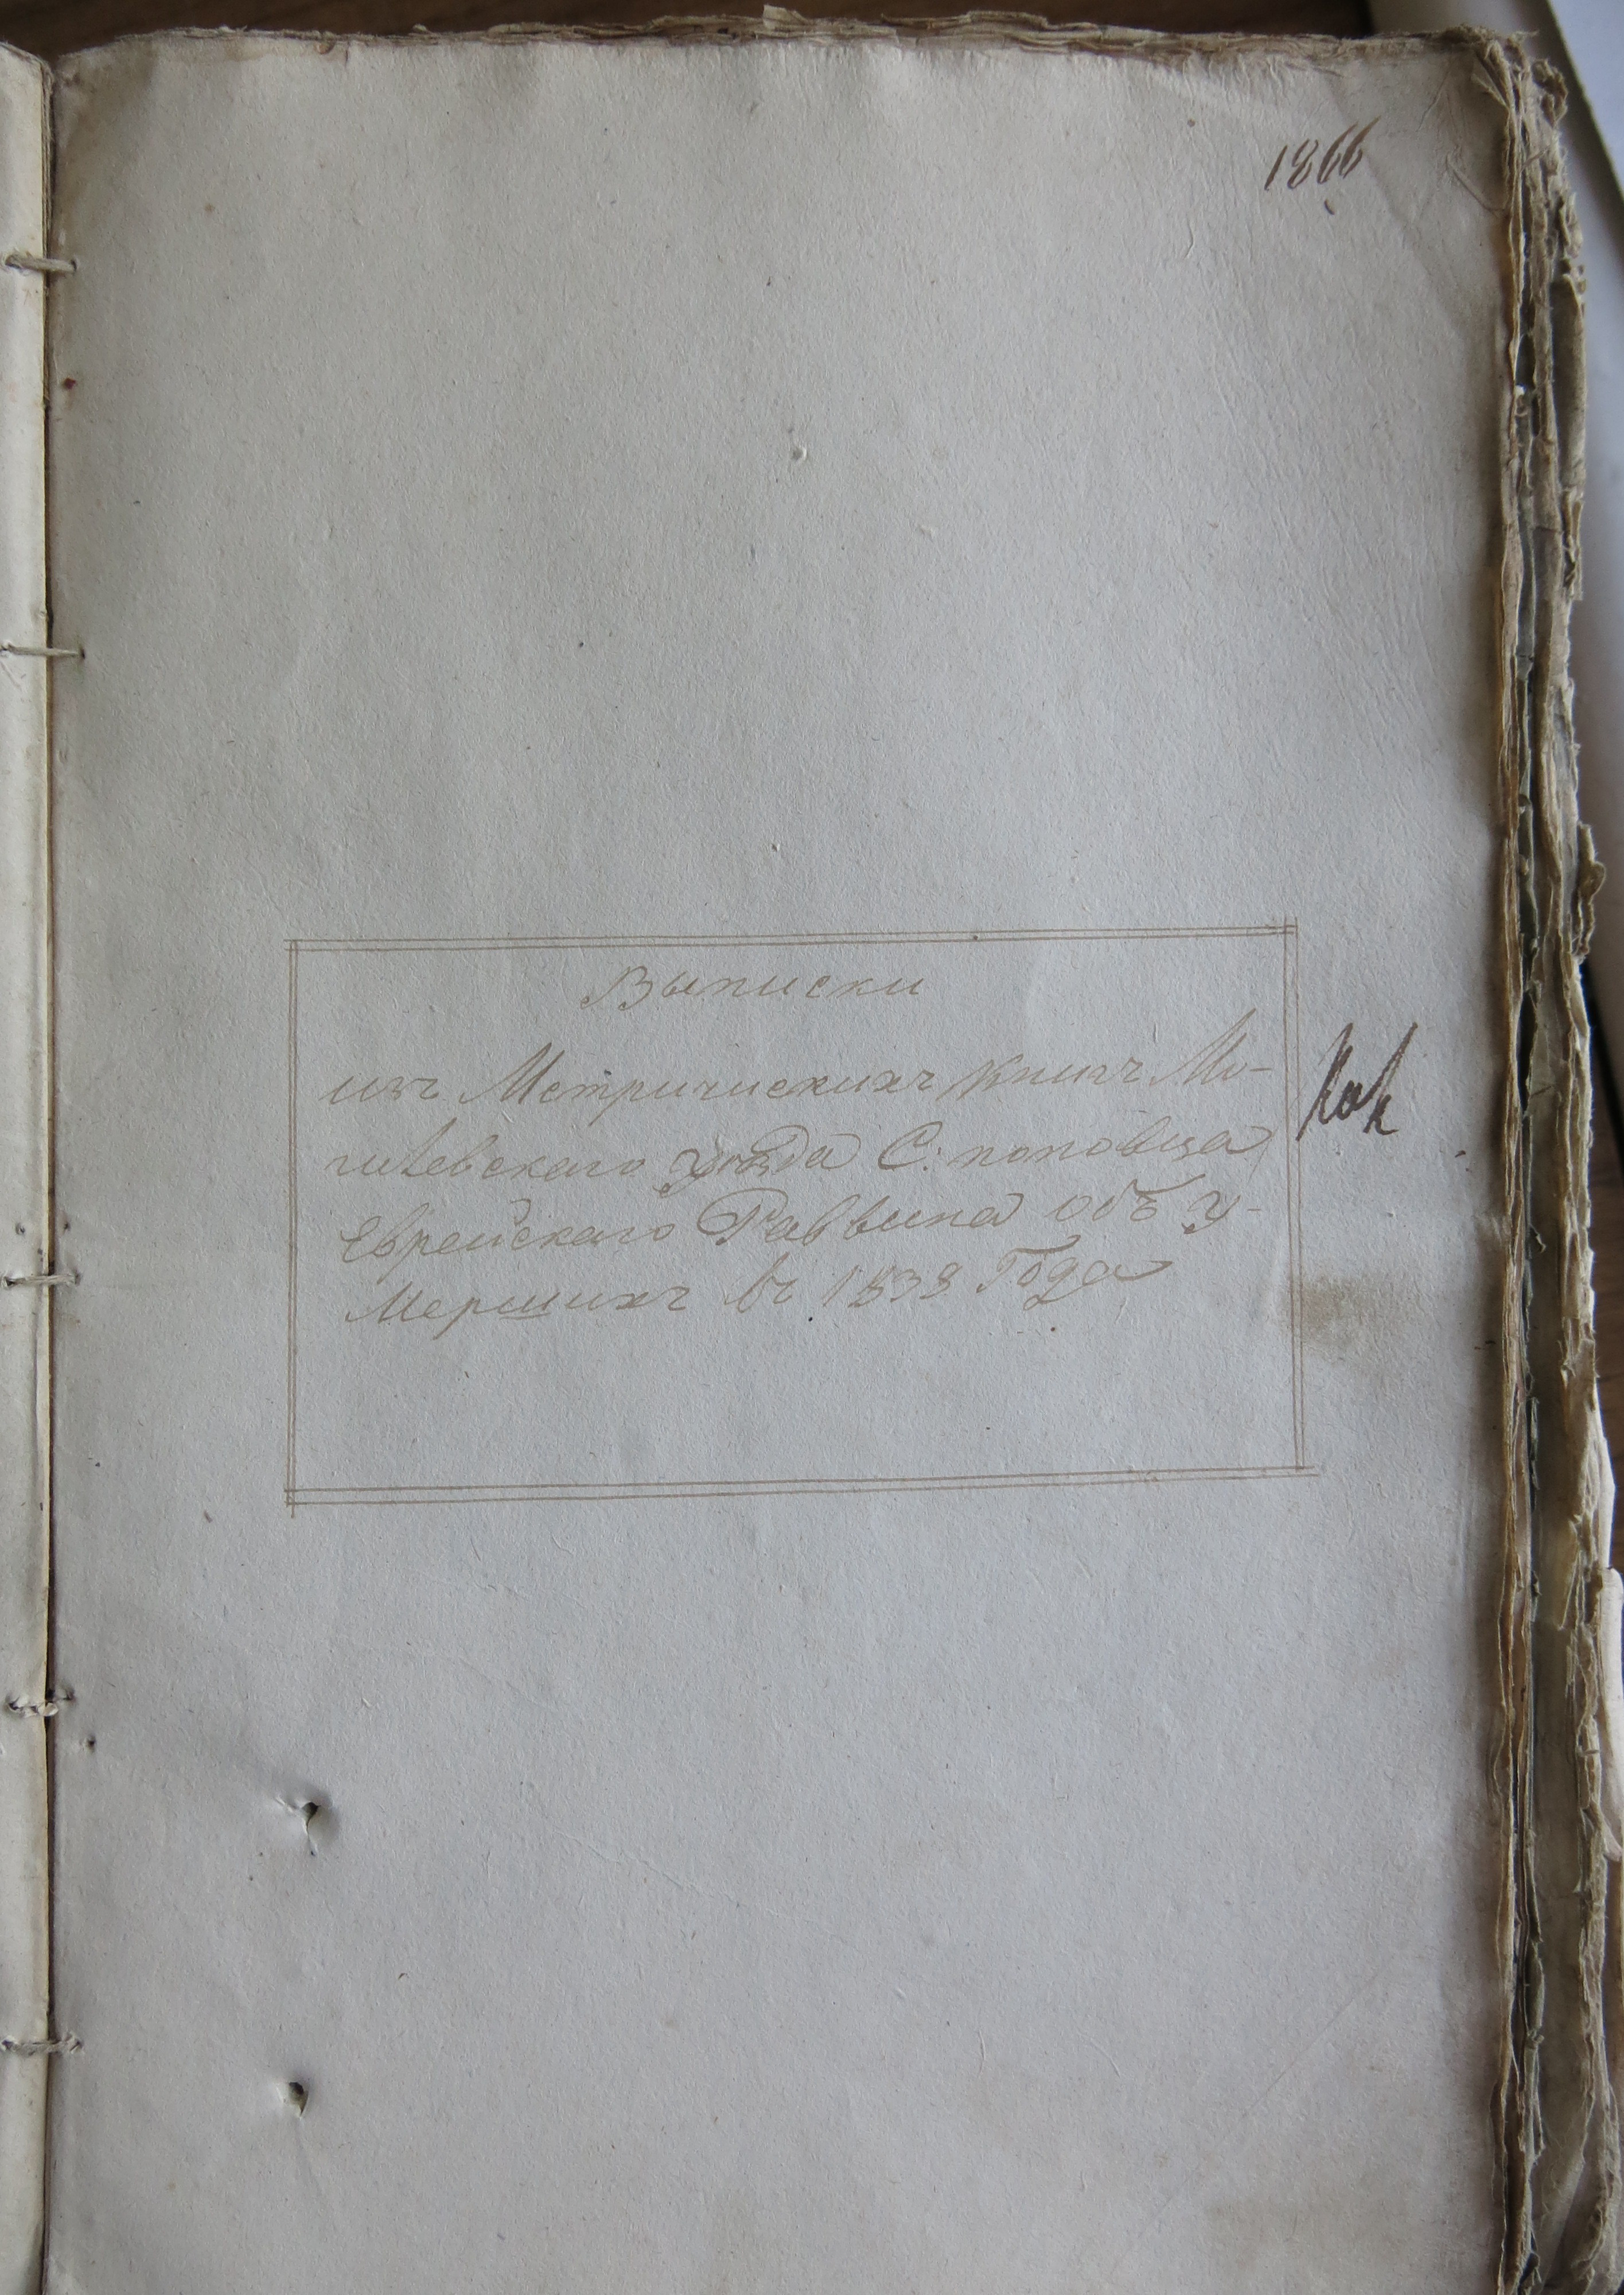 1866
Выписки
изъ Метричискихъ Книгъ Мо-
гилевскаго уѣзда С: поповца
Еврейскаго Раввина объ у-
Мершихъ въ 1838 Года